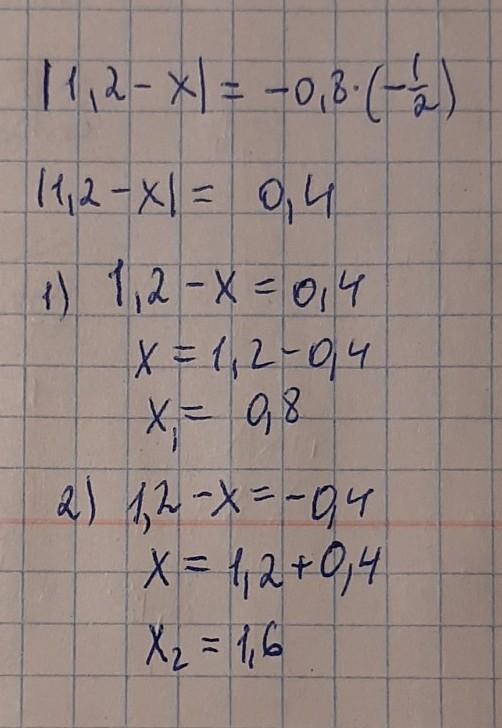 |1,2 - x| = -0,8·(-1/2)
|1,2 - x| = 0,4
1) 1,2 - x = 0,4
x = 1,2 - 0,4
x₁ = 0,8
2) 1,2 - x = -0,4
x = 1,2 + 0,4
x₂ = 1,6